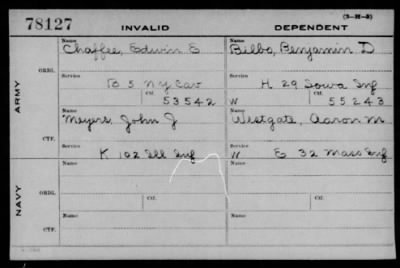 78127 INVALID DEPENDENT (3-H-3)
ARMY
ORIG.
Name Chaffee, Edwin E Name Bilbo, Benjamin D
Service B 5 N Y Cav Service H 29 Iowa Inf
Ctf. 53542 W Ctf. 55243
CTF.
Name Meyers, John J Name Westgate, Aaron M
Service K 102 Ill Inf Service W E 32 Mass Inf
NAVY
ORIG.
Name Name
Service Ctf. Service Ctf.
CTF.
Name Name